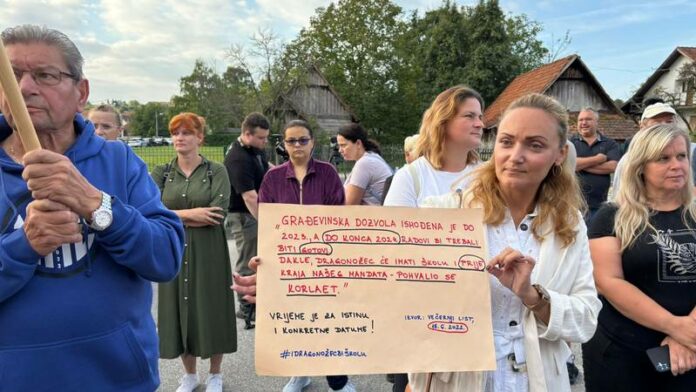 "GRAĐEVINSKA DOZVOLA ISHOĐENA JE DO
2023., A DO KONCA 2024. RADOVI BI TREBALI
BITI GOTOVI
DAKLE, DRAGONOŽEC ĆE IMATI ŠKOLU I PRIJE
KRAJA NAŠEG MANDATA - POHVALIO SE
KORLAET."
VRIJEME JE ZA ISTINU
I KONKRETNE DATUME!
IZVOR: VEČERNJI LIST,
15.6.2022.
#IDRAGONOŽECBIŠKOLU